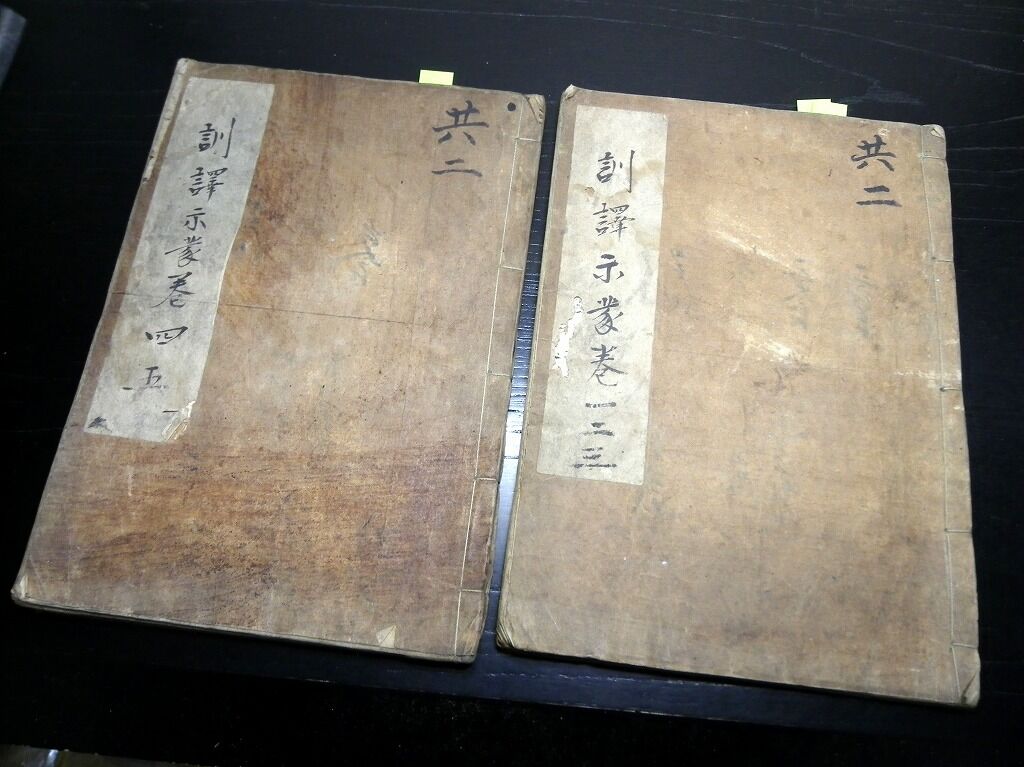 共二
訓譯示蒙卷一二三
共二
訓譯示蒙卷四五